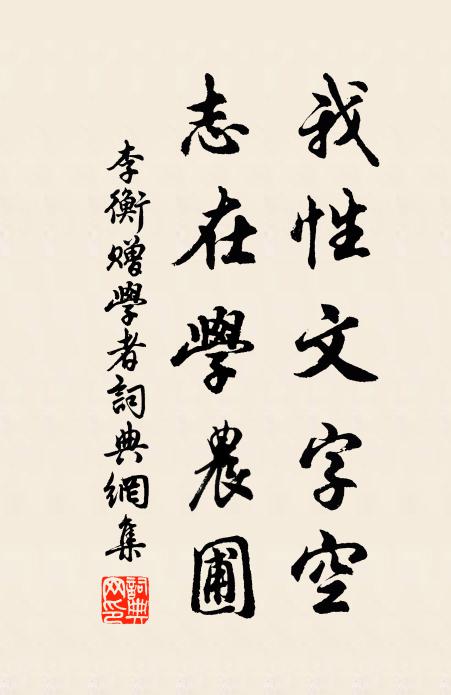 我性文字空
志在學農圃
李衡贈學者詞典網集
詞典網印